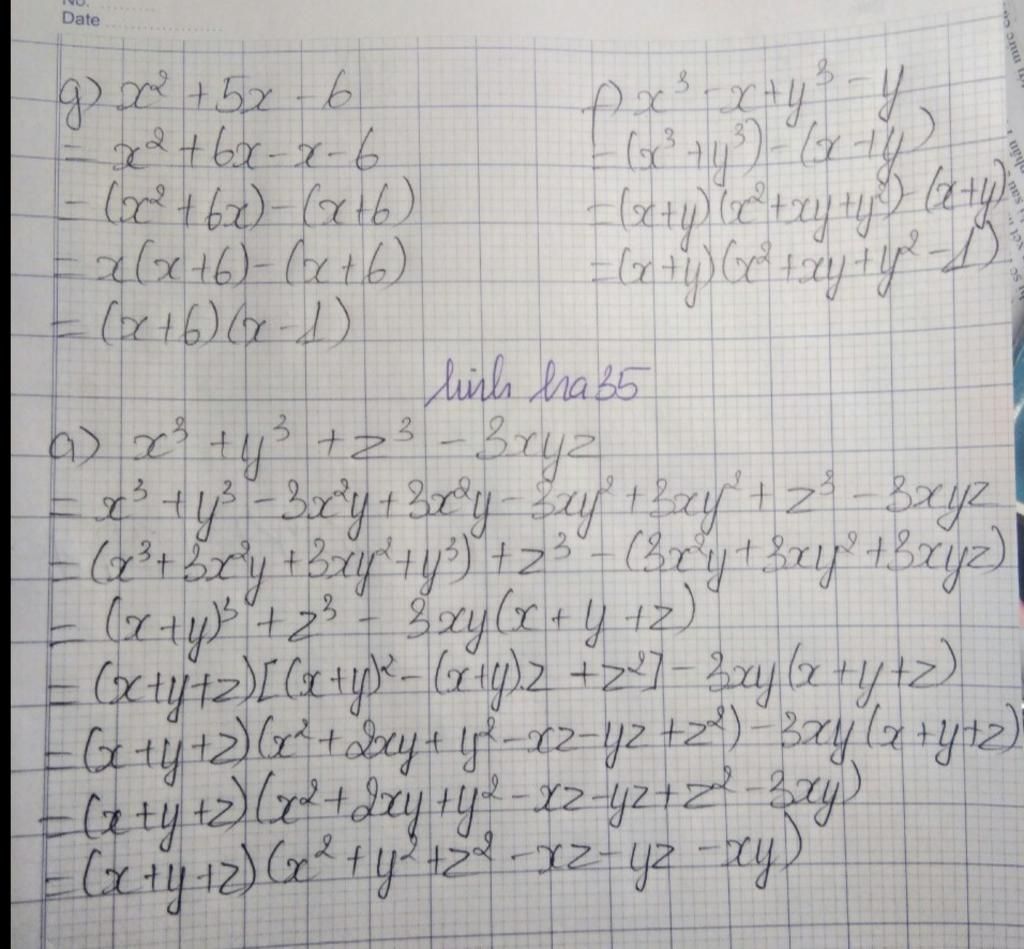 No.
Date
g) x² + 5x - 6
= x² + 6x - x - 6
= (x² + 6x) - (x + 6)
= x(x + 6) - (x + 6)
= (x + 6)(x - 1)
f) x³ - x + y³ - y
= (x³ + y³) - (x + y)
= (x + y)(x² + xy + y²) - (x + y)
= (x + y)(x² + xy + y² - 1)
linh ha35
a) x³ + y³ + z³ - 3xyz
= x³ + y³ - 3x²y + 3x²y - 3xy² + 3xy² + z³ - 3xyz
= (x³ + 3x²y + 3xy² + y³) + z³ - (3x²y + 3xy² + 3xyz)
= (x + y)³ + z³ - 3xy(x + y + z)
= (x + y + z)[(x + y)² - (x + y).z + z²] - 3xy(x + y + z)
= (x + y + z)(x² + 2xy + y² - xz - yz + z²) - 3xy(x + y + z)
= (x + y + z)(x² + 2xy + y² - xz - yz + z² - 3xy)
= (x + y + z)(x² + y² + z² - xz - yz - xy)